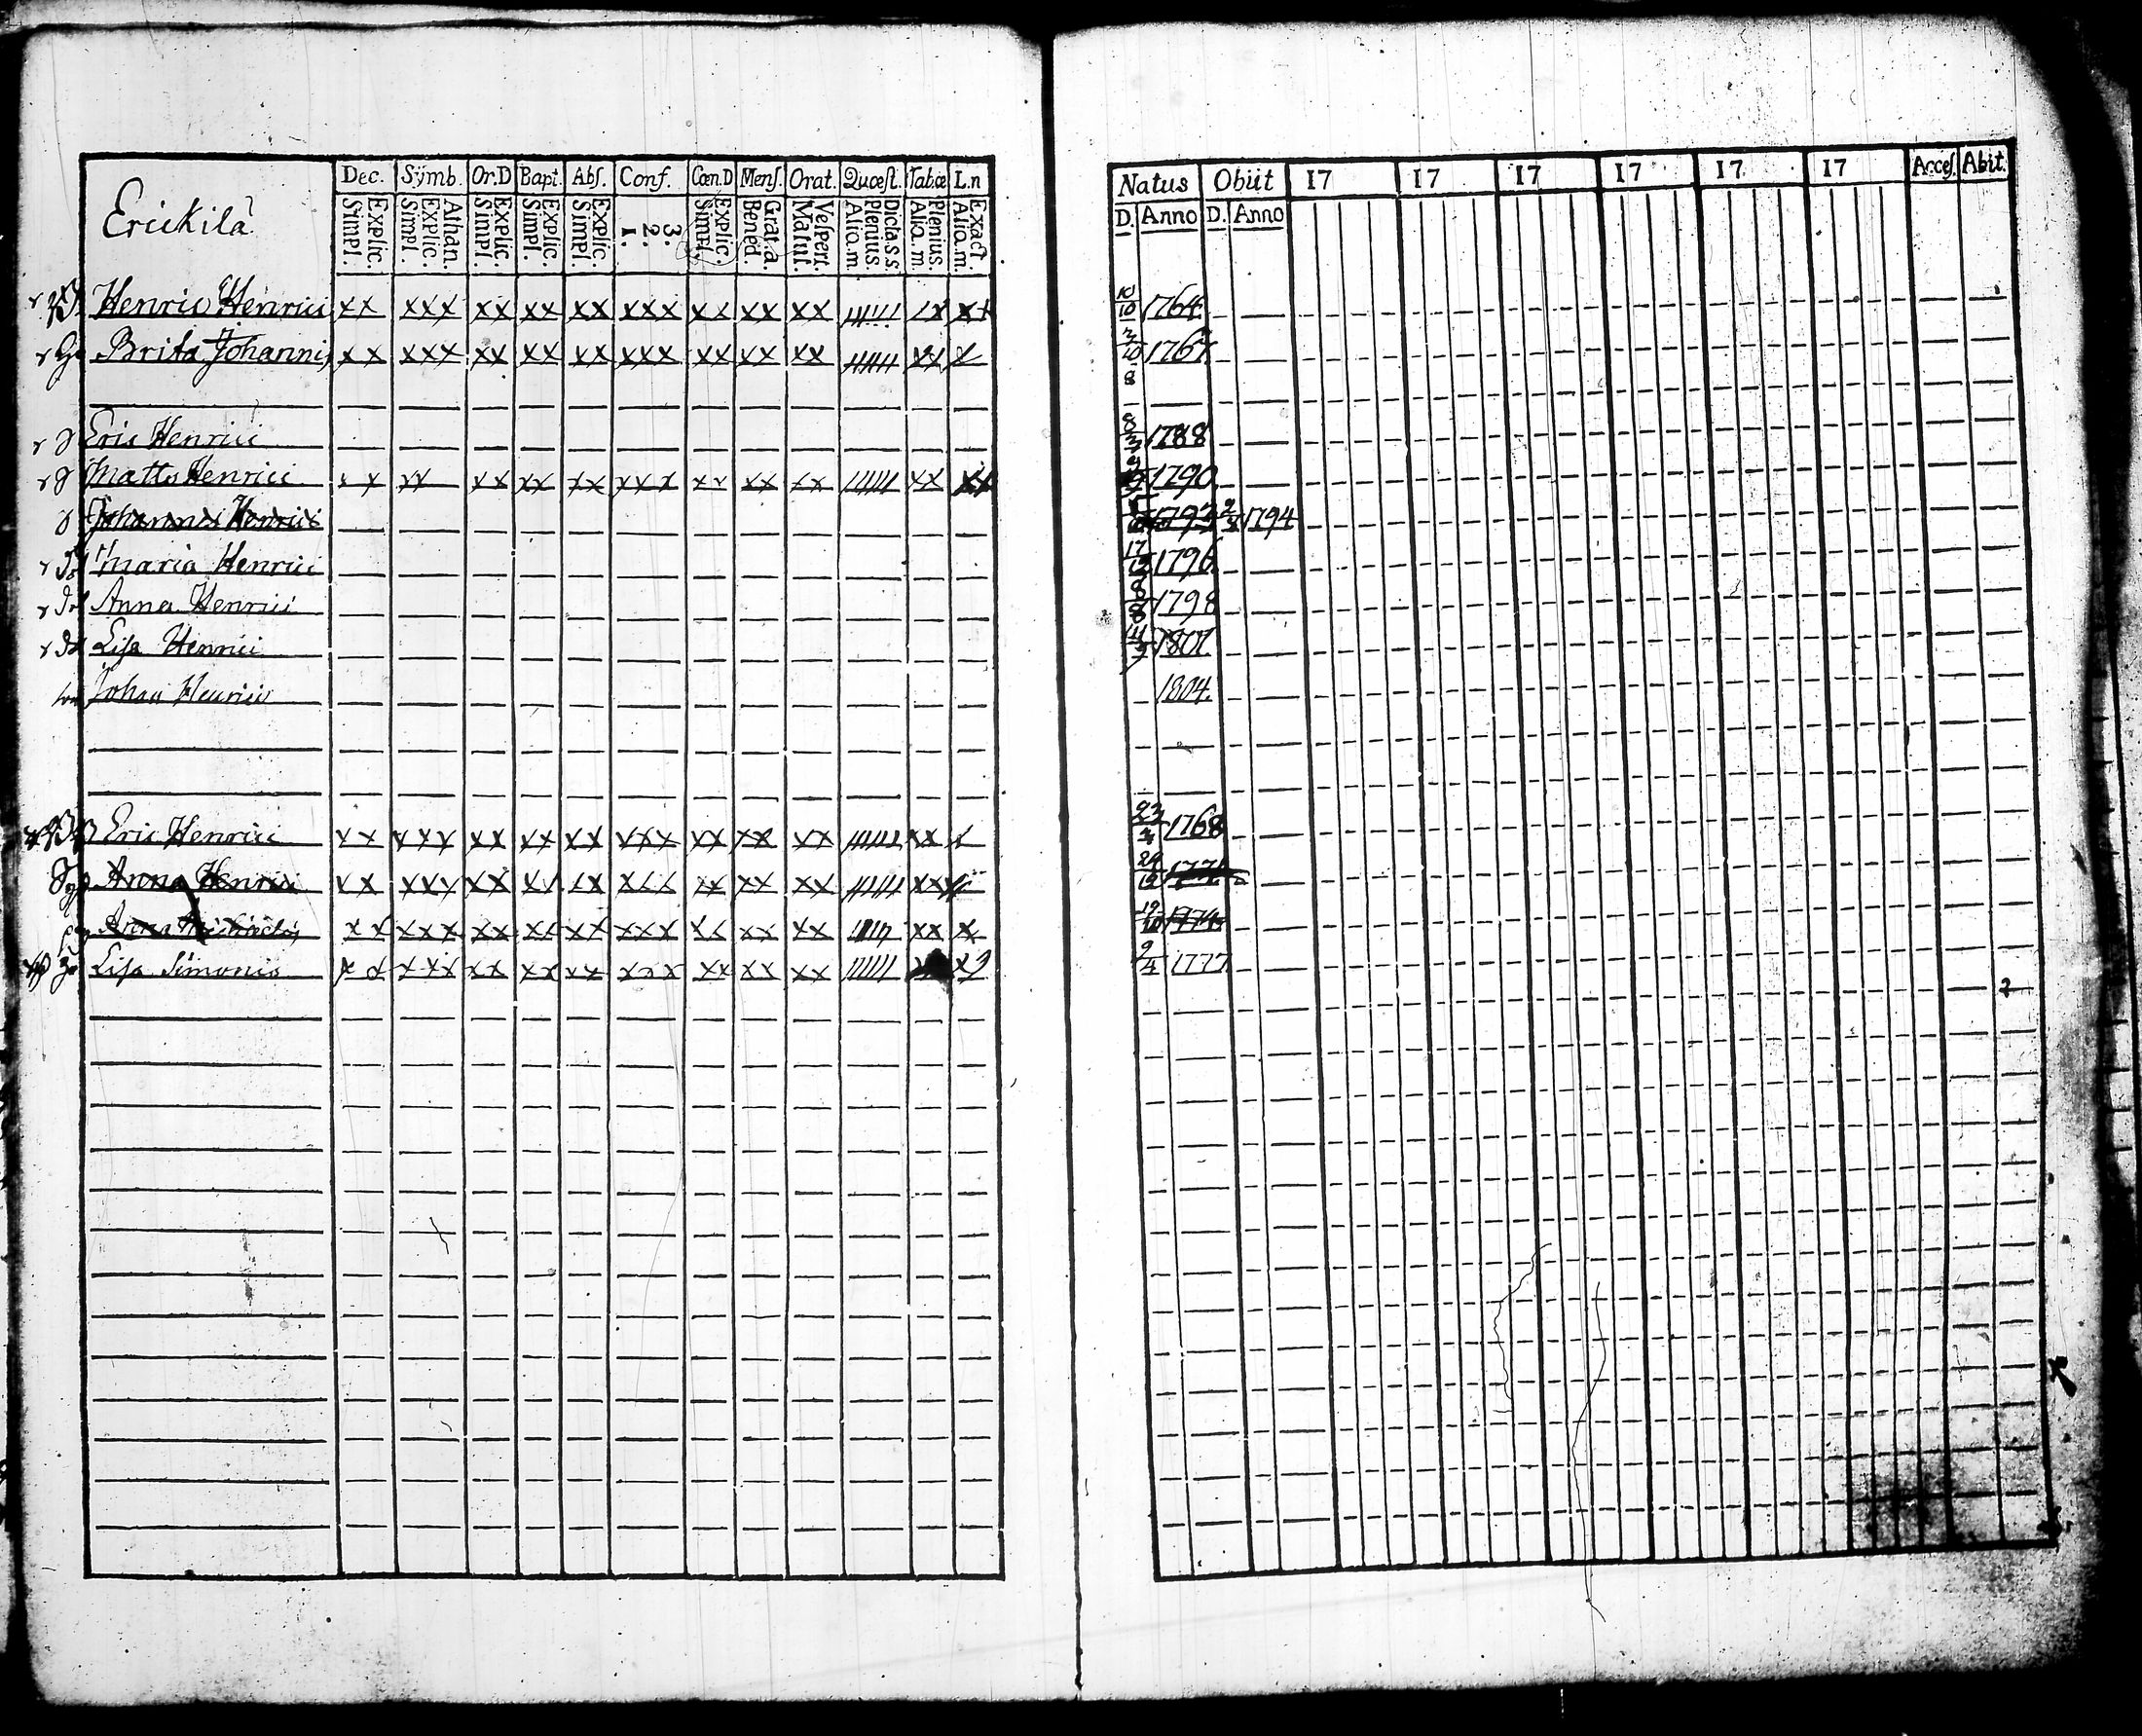 Erickilä
Dec. Symb. Or.D Bapt. Abs. Conf. Cœn.D Mens. Orat. Quæst. Tabæ L.n
Simpl. Explic. Simpl. Explic. Athan. Simpl. Explic. Simpl. Explic. Simpl. Explic. 1. 2. 3. Simpl. Explic. Bened. Grat. a. Matut. Vespert. Alia. m. Plenius. Dicta. s.s. Alia. m. Plenius. Alia. m. Exact
Natus Obiit 17 17 17 17 17 17 Acces. Abit.
D. Anno D. Anno
Henric Henrici xx xxx xx xx xx xxx xx xx xx xx xx 10/10 1764
Brita Johannis xx xxx xx xx xx xxx xx xx xx xx x 1767
8
Eric Henrici 8/3 1788
Matts Henrici xx xx xx xx xx xxx xx xx xx xx xx 1790
Johannes Henrici 1794
Maria Henrici 17/12 1796
Anna Henrici 8/8 1798
Lisa Henrici 1801
Johan Henrici 1804
Eric Henrici xx xxx xx xx xx xxx xx xx xx xx x 1768
Anna Henrici xx xxx xx xx xx xxx xx xx xx xx 24/12
Anna xx xxx xx xx xx xxx xx xx xx xx x
Lisa Simonis xx xxx xx xx xx xxx xx xx xx 9/4 1777